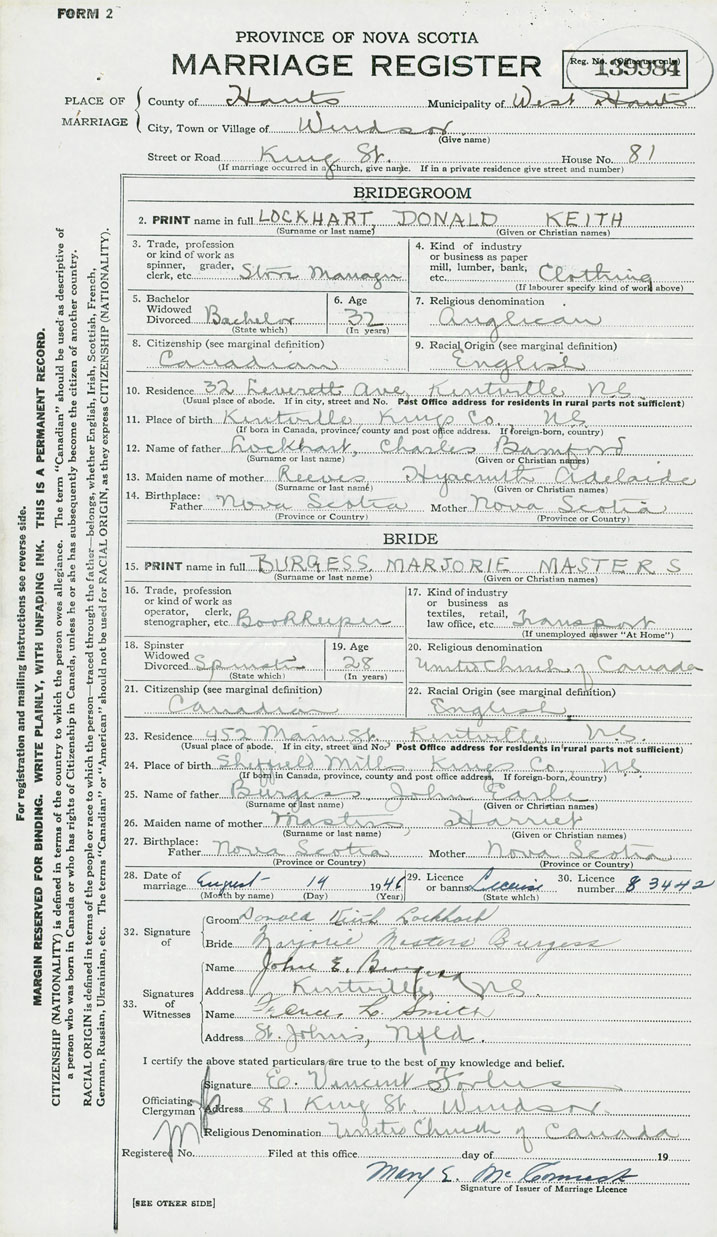 FORM 2
PROVINCE OF NOVA SCOTIA
MARRIAGE REGISTER
Reg. No. (Office use only)
139984
PLACE OF MARRIAGE
County of Hants Municipality of West Hants
City, Town or Village of Windsor
(Give name)
Street or Road King St. House No. 81
(If marriage occurred in a Church, give name. If in a private residence give street and number)
BRIDEGROOM
2. PRINT name in full LOCKHART, DONALD KEITH
(Surname or last name) (Given or Christian names)
3. Trade, profession or kind of work as spinner, grader, clerk, etc. Store Manager
4. Kind of industry or business as paper mill, lumber, bank, etc. Clothing
(If labourer specify kind of work above)
5. Bachelor Widowed Divorced Bachelor
(State which)
6. Age 32
(In years)
7. Religious denomination
Anglican
8. Citizenship (see marginal definition)
Canadian
9. Racial Origin (see marginal definition)
English
10. Residence 32 Leverett Ave, Kentville N.S.
(Usual place of abode. If in city, street and No. Post Office address for residents in rural parts not sufficient)
11. Place of birth Kentville Kings Co. N.S.
(If born in Canada, province, county and post office address. If foreign-born, country)
12. Name of father Lockhart, Charles Bamford
(Surname or last name) (Given or Christian names)
13. Maiden name of mother Reeves Hyacinth Adelaide
(Surname or last name) (Given or Christian names)
14. Birthplace: Father Nova Scotia Mother Nova Scotia
(Province or Country) (Province or Country)
BRIDE
15. PRINT name in full BURGESS, MARJORIE MASTERS
(Surname or last name) (Given or Christian names)
16. Trade, profession or kind of work as operator, clerk, stenographer, etc. Bookkeeper
17. Kind of industry or business as textiles, retail, law office, etc. Transport
(If unemployed answer "At Home")
18. Spinster Widowed Divorced Spinster
(State which)
19. Age 28
(In years)
20. Religious denomination
United Church of Canada
21. Citizenship (see marginal definition)
Canadian
22. Racial Origin (see marginal definition)
English
23. Residence 452 Main St. Kentville N.S.
(Usual place of abode. If in city, street and No. Post Office address for residents in rural parts not sufficient)
24. Place of birth Sheffield Mills Kings Co., N.S.
(If born in Canada, province, county and post office address, If foreign-born, country)
25. Name of father Burgess John Earle
(Surname or last name) (Given or Christian names)
26. Maiden name of mother Masters, Harriet
(Surname or last name) (Given or Christian names)
27. Birthplace: Father Nova Scotia Mother Nova Scotia
(Province or Country) (Province or Country)
28. Date of marriage August 14 1946
(Month by name) (Day) (Year)
29. Licence or banns License
(State which)
30. Licence number 83442
32. Signature of
Groom Donald Keith Lockhart
Bride Marjorie Masters Burgess
33. Signatures of Witnesses
Name John E. Burgess
Address Kentville, N.S.
Name Frances L. Smith
Address St. John's, Nfld.
I certify the above stated particulars are true to the best of my knowledge and belief.
Officiating Clergyman
Signature E. Vincent Forbes
Address 81 King St. Windsor.
Religious Denomination United Church of Canada
Registered No. Filed at this office day of 19
Mary E. McCormick
Signature of Issuer of Marriage Licence
[SEE OTHER SIDE]
For registration and mailing instructions see reverse side.
MARGIN RESERVED FOR BINDING. WRITE PLAINLY, WITH UNFADING INK. THIS IS A PERMANENT RECORD.
CITIZENSHIP (NATIONALITY) is defined in terms of the country to which the person owes allegiance. The term "Canadian" should be used as descriptive of
a person who was born in Canada or who has rights of Citizenship in Canada, unless he or she has subsequently become the citizen of another country.
RACIAL ORIGIN is defined in terms of the people or race to which the person—traced through the father—belongs, whether English, Irish, Scottish, French,
German, Russian, Ukrainian, etc. The terms "Canadian" or "American" should not be used for RACIAL ORIGIN, as they express CITIZENSHIP (NATIONALITY).